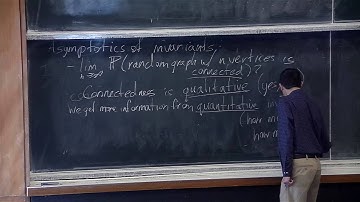 Asymptotics of invariants:
- lim n→∞ P(random graph w/ n vertices is
connected)?
Connectedness is qualitative (yes
We get more information from quantitative in
(how m
how m